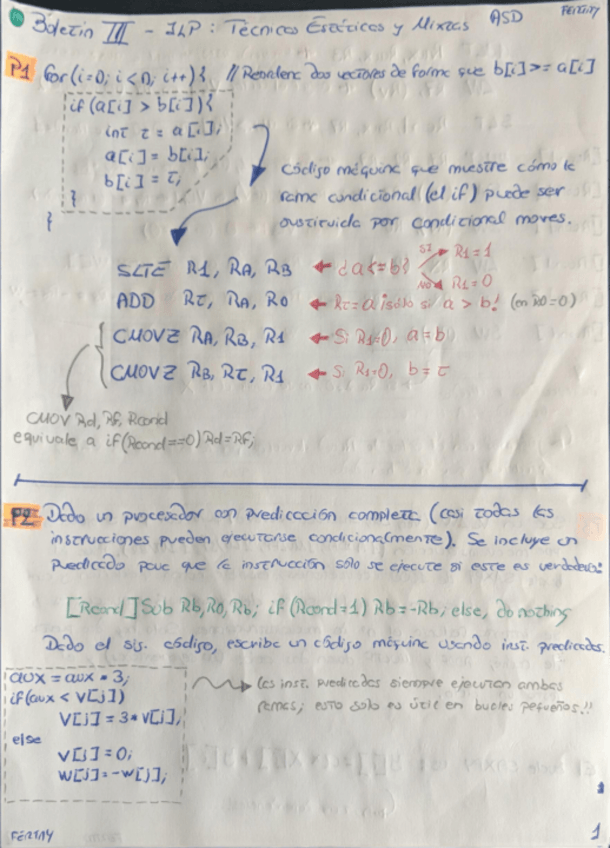 Boletín III - ILP: Técnicas Estáticas y Mixtas ASD FERTNY
P1 for(i=0; i<n; i++){ // Reordena dos vectores de forma que b[i]>=a[i]
if(a[i] > b[i]){
int t = a[i];
a[i] = b[i];
b[i] = t;
}
}
Código máquina que muestre cómo la
rama condicional (el if) puede ser
sustituida por condicional moves.
SLTE R1, RA, RB ¿a<=b? SI R1=1
NO R1=0
ADD Rt, RA, R0 Rt=a ¡sólo si a > b! (con R0=0)
CMOVZ RA, RB, R1 Si R1=0, a=b
CMOVZ RB, Rt, R1 Si R1=0, b=t
CMOV Rd, Rf, Rcond
equivale a if(Rcond==0) Rd=Rf;
P2 Dado un procesador con predicación completa (casi todas las
instrucciones pueden ejecutarse condicionalmente). Se incluye un
predicado para que la instrucción sólo se ejecute si este es verdadero:
[Rcond] Sub Rb, R0, Rb; if (Rcond=1) Rb=-Rb; else, do nothing
Dado el sis. código, escribe un código máquina usando inst. predicadas.
aux = aux * 3;
if(aux < V[j])
V[j] = 3*V[j];
else
V[j] = 0;
W[j]=-W[j];
las inst. predicadas siempre ejecutan ambas
ramas; esto solo es útil en bucles pequeños!!
FERTNY 1